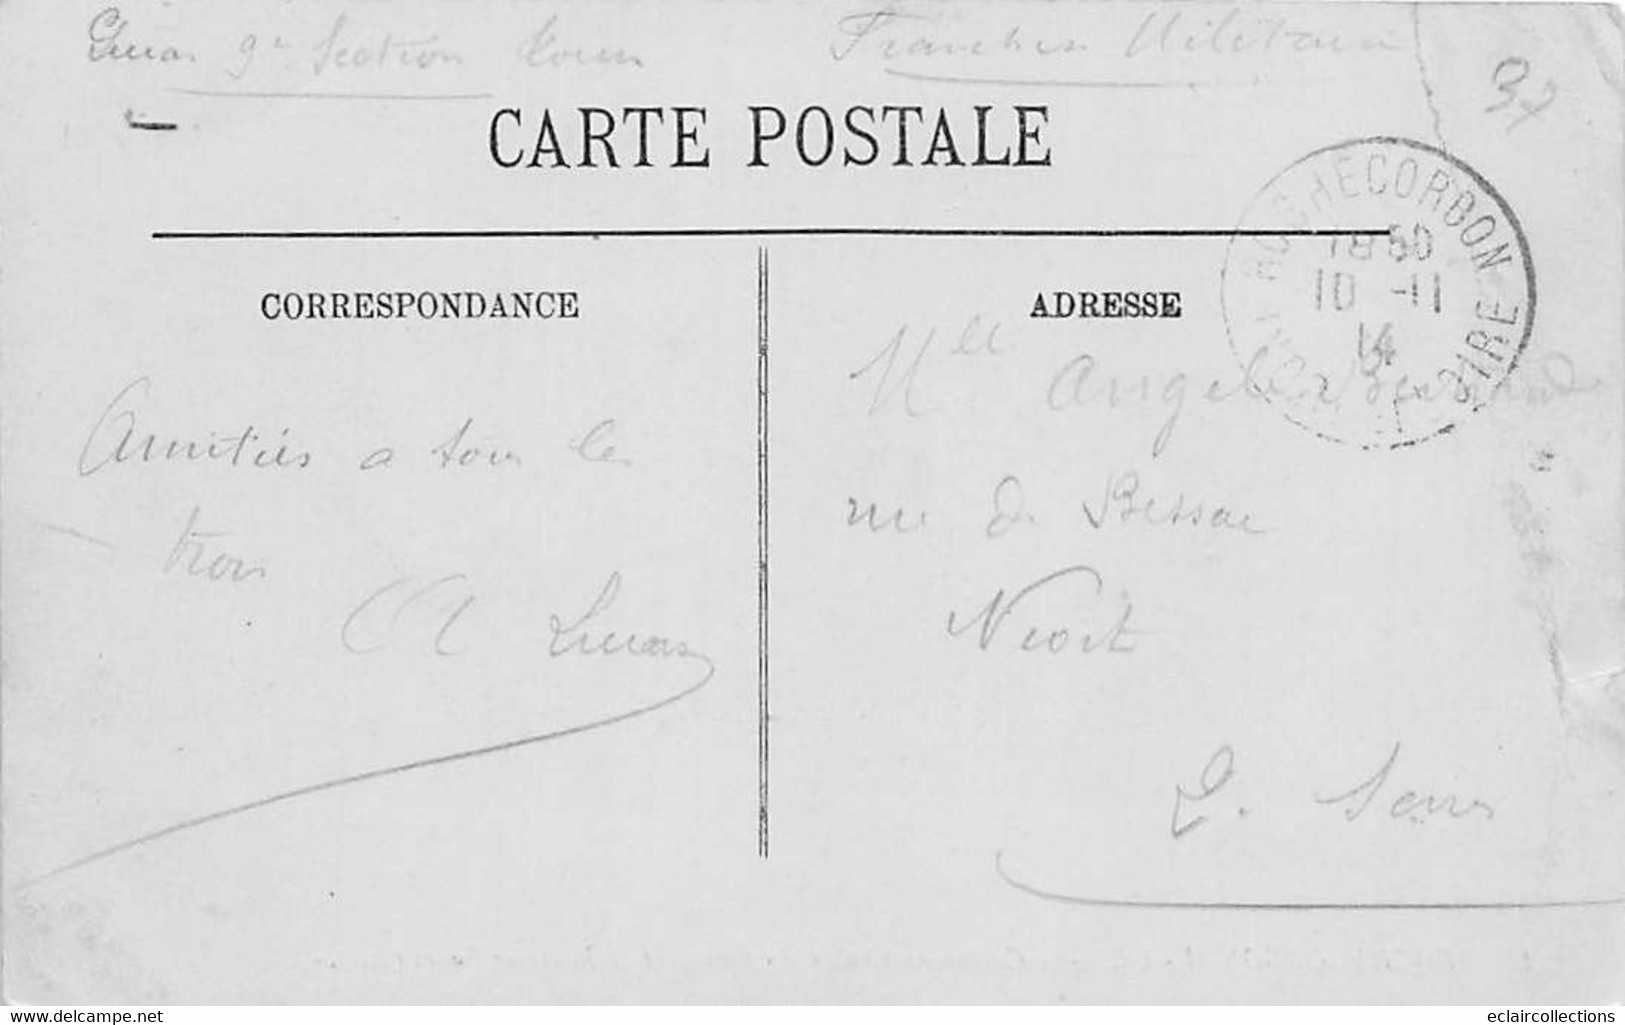 Lucas 9e Section
Franchise Militaire
37
CARTE POSTALE
ROCHECORBON
18 50
10 -11
14
INDRE-ET-LOIRE
CORRESPONDANCE
ADRESSE
Amitiés a tous les
trois
A Lucas
Mlle Angele
rue de Bessac
Niort
2. Sevres
www.delcampe.net
eclaircollections